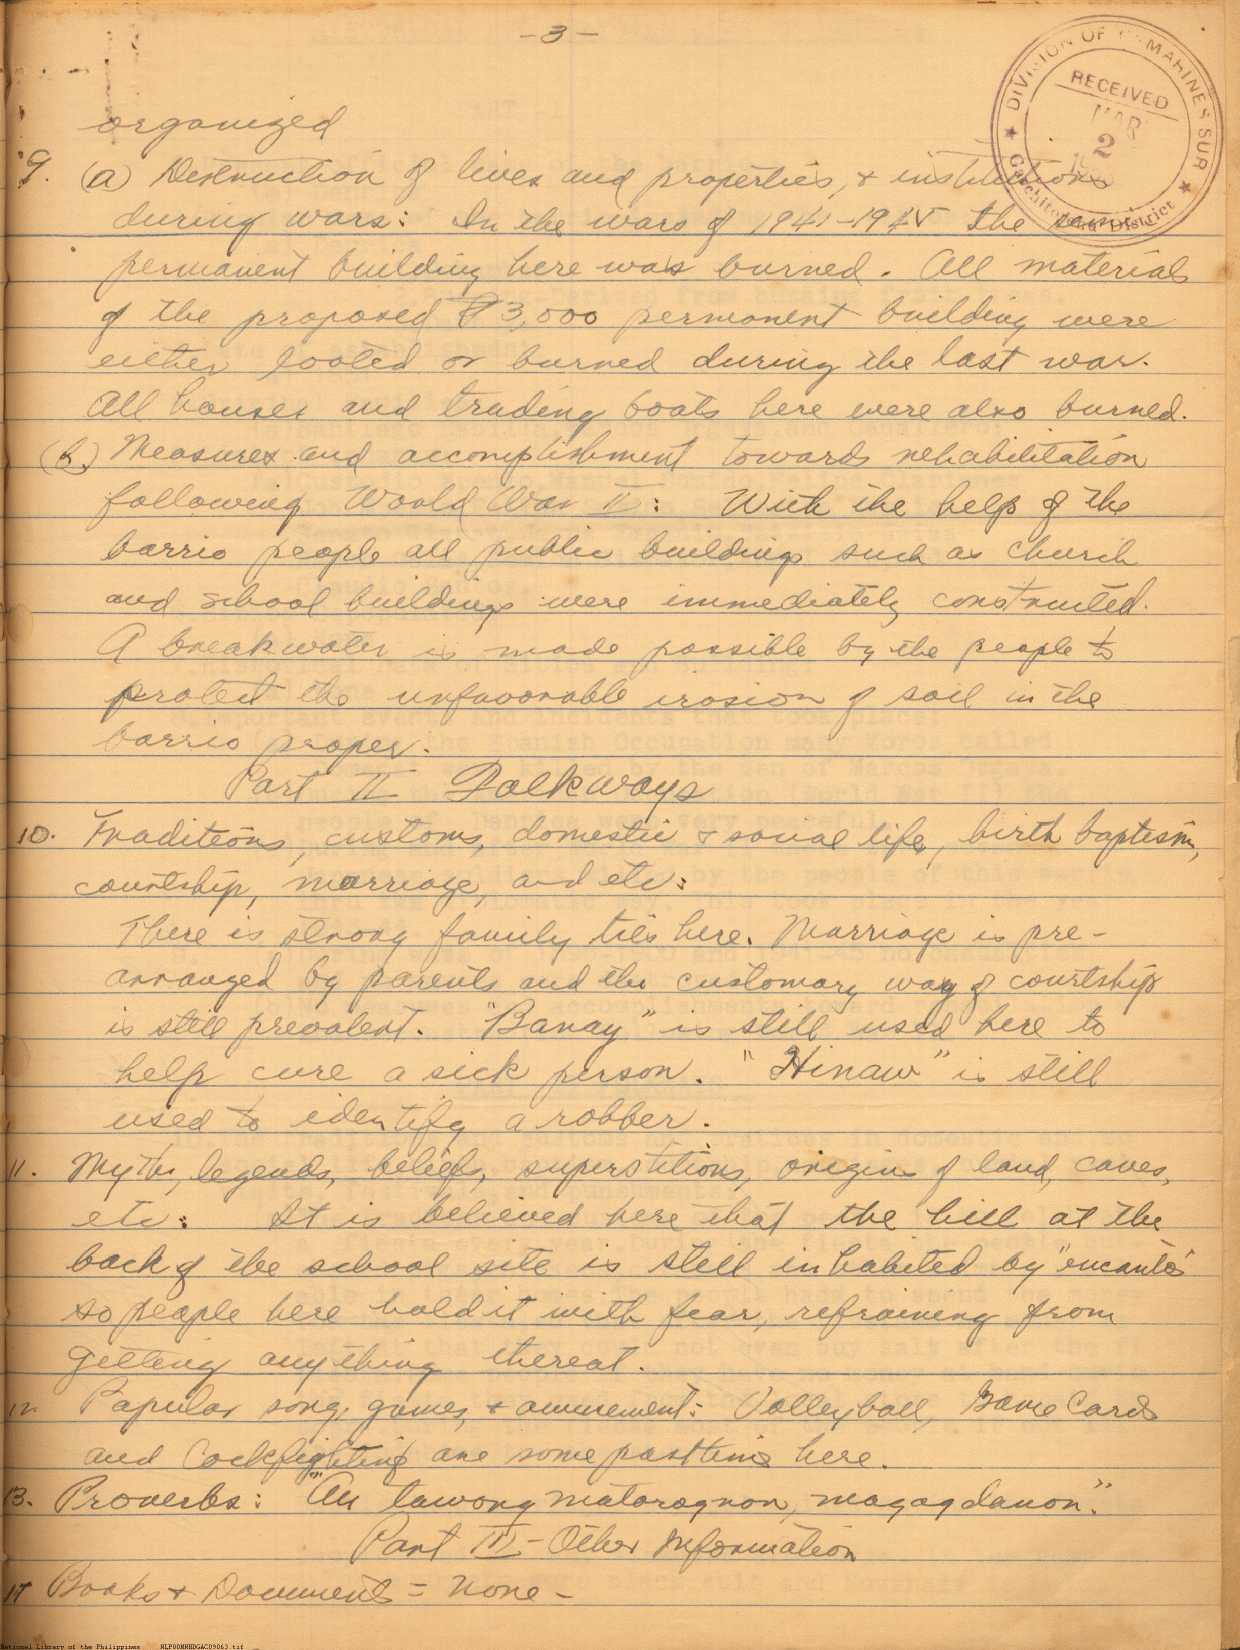 -3-
DIVISION OF CAMARINES SUR
RECEIVED
MAR
2
District
organized
9. (a) Destruction of lives and properties, & institutions
during wars: In the wars of 1941-1945 the
permanent building here was burned. All materials
of the proposed ₱3,000 permanent building were
either looted or burned during the last war.
All houses and trading boats here were also burned.
(b.) Measures and accomplishment towards rehabilitation
following World War II: With the help of the
barrio people all public buildings such as church
and school buildings were immediately constructed.
A breakwater is made possible by the people to
protect the unfavorable irosion of soil in the
barrio proper.
Part II Folkways
10. Traditions, customs, domestic & social life, birth baptism,
courtship, marriage, and etc:
There is strong family ties here. Marriage is pre-
arranged by parents and the customary way of courtship
is still prevalent. "Banay" is still used here to
help cure a sick person. "Hinaw" is still
used to identify a robber.
11. Myths, legends, beliefs, superstitions, origins of land, caves,
etc: It is believed here that the hill at the
back of the school site is still inhabited by "encantos"
so people here hold it with fear, refraining from
getting anything thereat.
12 Popular song, games, & amusement: Volleyball, Game Cards
and Cockfighting are some pasttime here.
13. Proverbs: "An tawong matorognon, magagdanon".
Part III - Other Information
14 Books & Documents = none -
National Library of the Philippines NLPOOMNHDGAC09063.tif